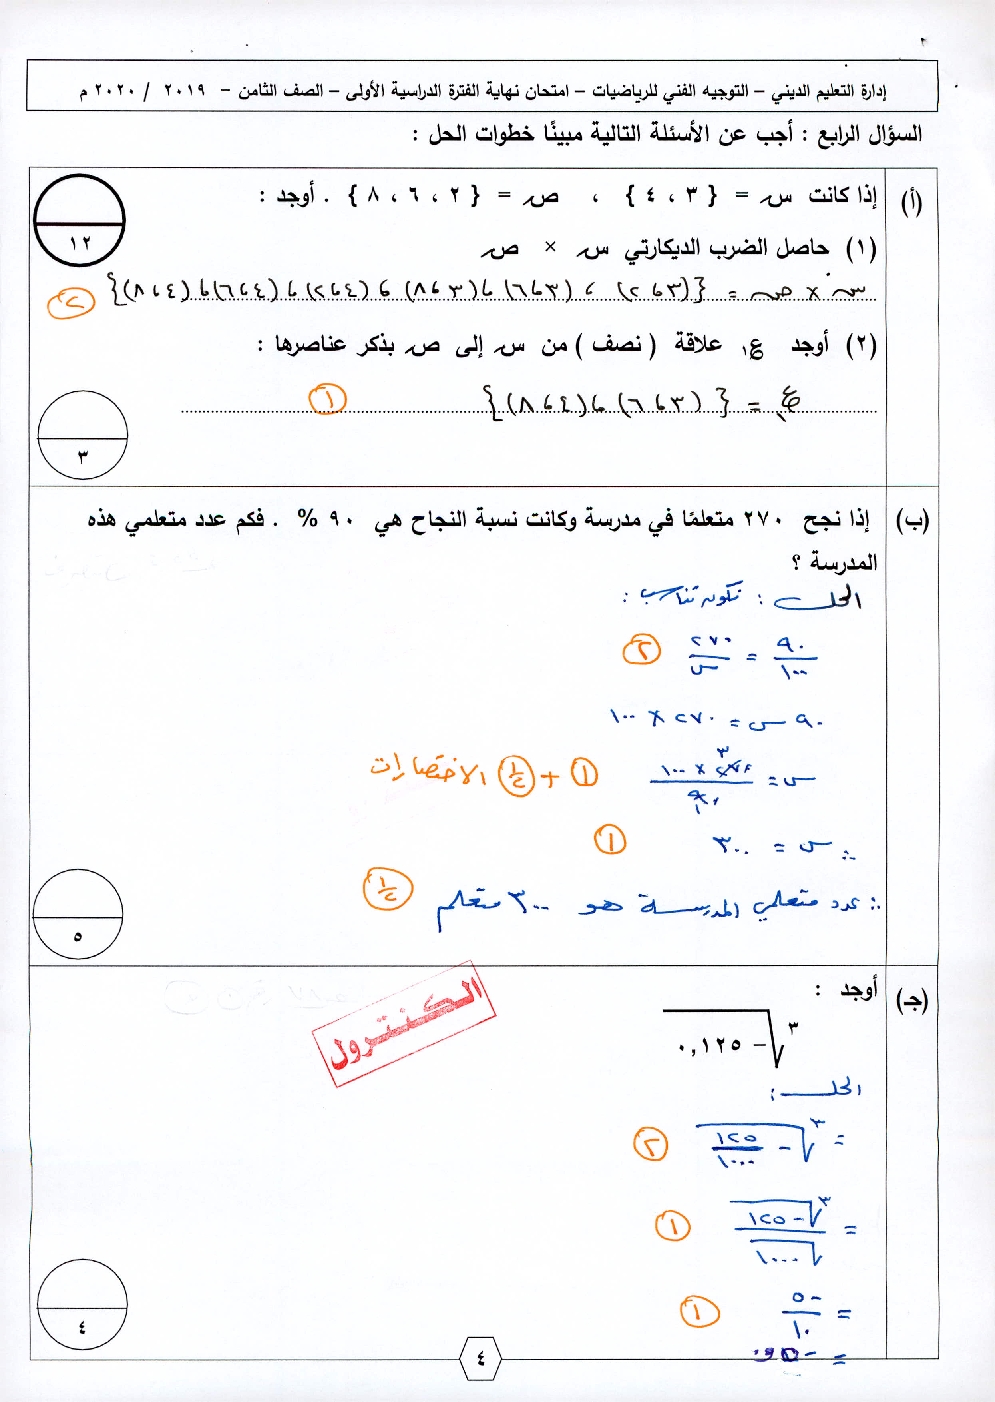 إدارة التعليم الديني – التوجيه الفني للرياضيات – امتحان نهاية الفترة الدراسية الأولى – الصف الثامن – ٢٠١٩ / ٢٠٢٠ م
السؤال الرابع : أجب عن الأسئلة التالية مبينًا خطوات الحل :
(أ) إذا كانت س = { ٣ ، ٤ } ، ص = { ٢ ، ٦ ، ٨ } . أوجد :
١٢
(١) حاصل الضرب الديكارتي س × ص
س × ص = {(٣ ، ٢) ، (٣ ، ٦) ، (٣ ، ٨) ، (٤ ، ٢) ، (٤ ، ٦) ، (٤ ، ٨)} ٢
(٢) أوجد ع١ علاقة ( نصف ) من س إلى ص بذكر عناصرها :
ع١ = { (٣ ، ٦) ، (٤ ، ٨)} ١
٣
(ب) إذا نجح ٢٧٠ متعلمًا في مدرسة وكانت نسبة النجاح هي ٩٠ % . فكم عدد متعلمي هذه
المدرسة ؟
الحل : نكون تناسب :
٩٠/١٠٠ = ٢٧٠/س ٢
٩٠ س = ٢٧٠ × ١٠٠
س = ٢٧٠ × ١٠٠ / ٩٠ ١ + ١/٢ الاختصارات
٣
١
∴ س = ٣٠٠ ١
∴ عدد متعلمي المدرسة هو ٣٠٠ متعلم ١/٢
٥
(جـ) أوجد :
الكنترول
∛(− ٠,١٢٥)
الحل :
= ∛(− ١٢٥/١٠٠٠) ٢
= ∛(−١٢٥) / √١٠٠٠ ١
= −٥/١٠ ١
= −٠,٥
٤
٤